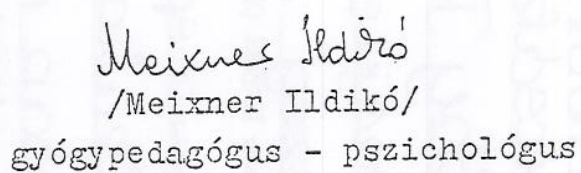 Meixner Ildikó
/Meixner Ildikó/
gyógypedagógus - pszichológus